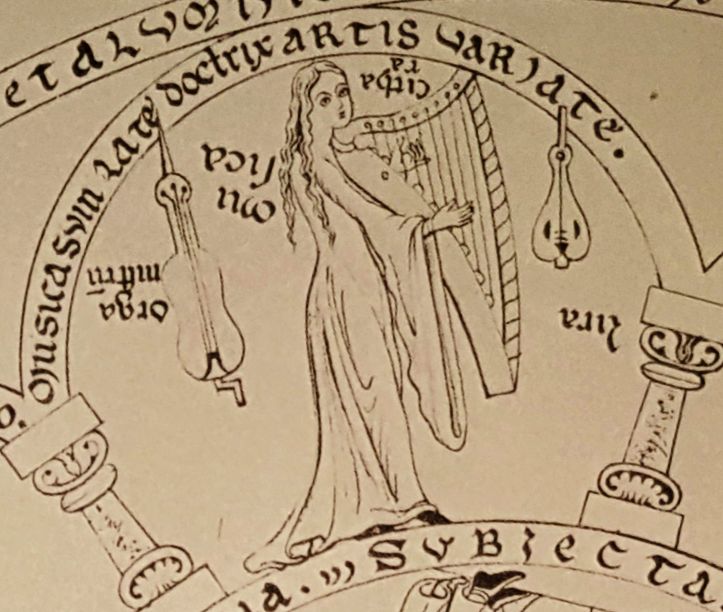 MUSICA SUM LATE DOCTRIX ARTIS VARIATE.
Citha
ra
Mu
sica
Orga
nistrū
lira
SUBJECTA